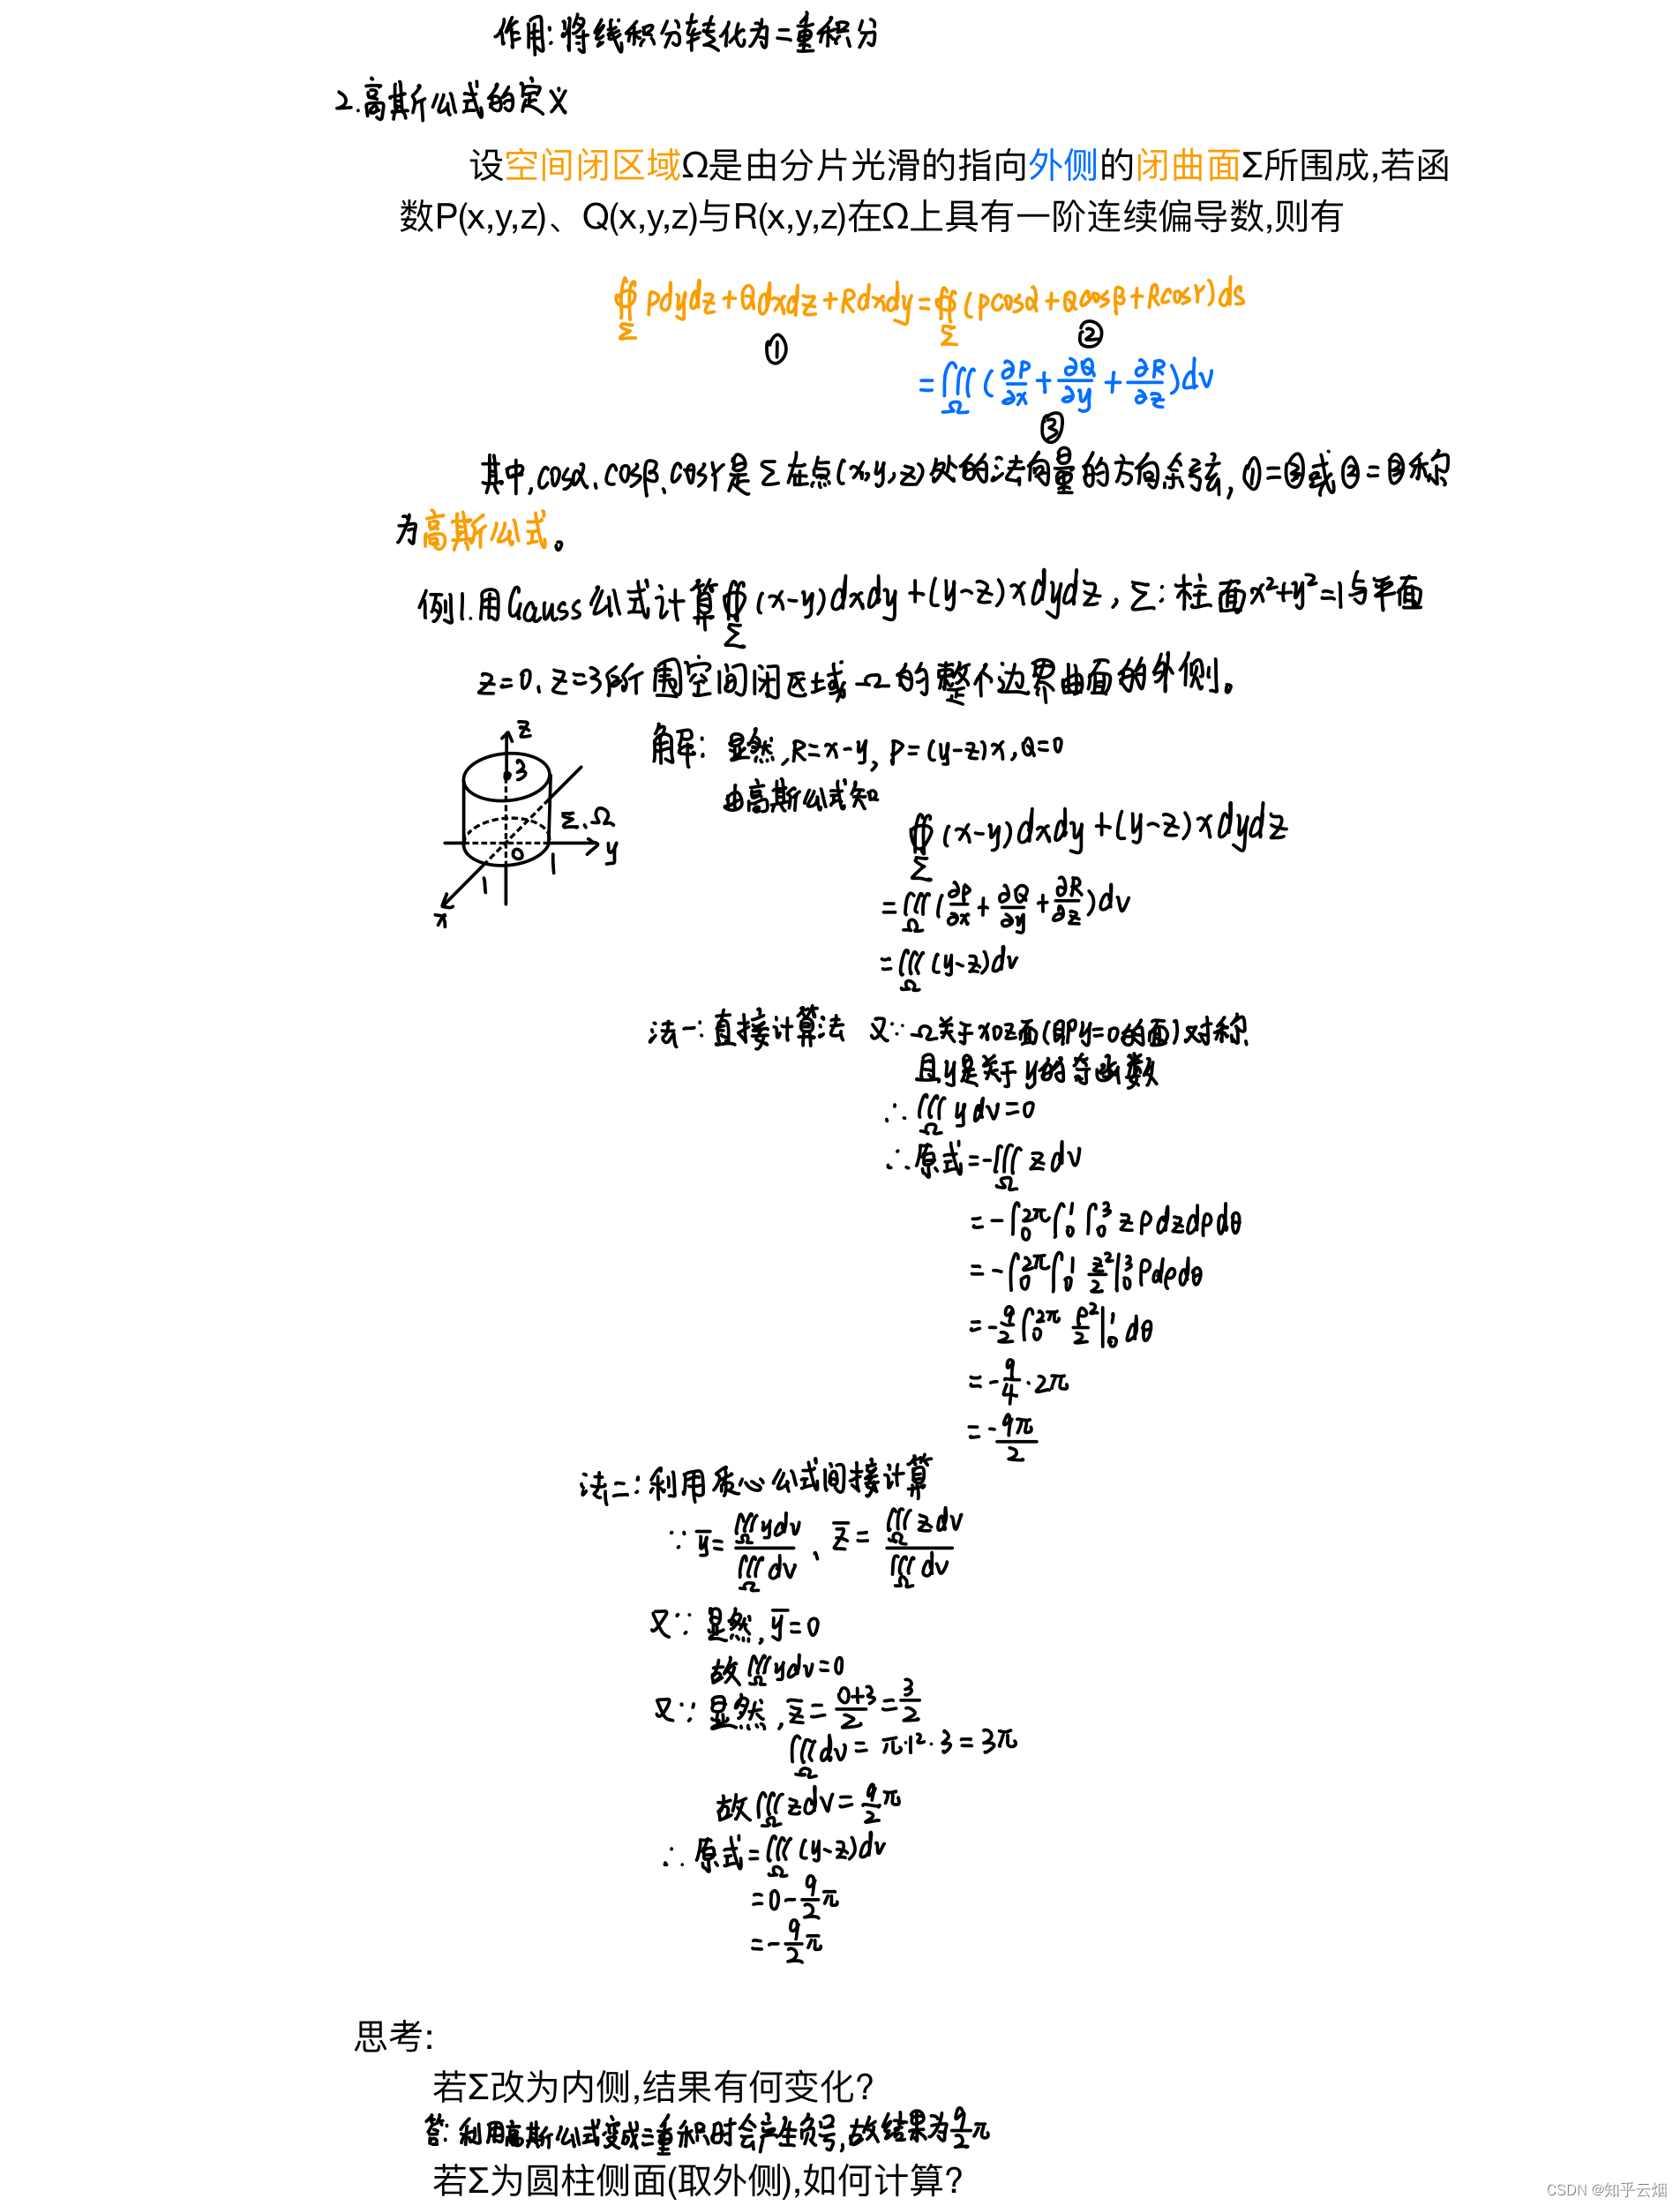 作用:将线积分转化为二重积分
2.高斯公式的定义
设空间闭区域Ω是由分片光滑的指向外侧的闭曲面Σ所围成,若函
数P(x,y,z)、Q(x,y,z)与R(x,y,z)在Ω上具有一阶连续偏导数,则有
∯_Σ Pdydz+Qdxdz+Rdxdy=∯_Σ (Pcosα+Qcosβ+Rcosγ)ds
① ②
=∭_Ω (∂P/∂x+∂Q/∂y+∂R/∂z)dv
③
其中,cosα、cosβ、cosγ是Σ在点(x,y,z)处的法向量的方向余弦,①=③或②=③称
为高斯公式。
例1.用Gauss公式计算∯_Σ (x-y)dxdy+(y-z)xdydz,Σ:柱面x²+y²=1与平面
z=0、z=3所围空间闭区域Ω的整个边界曲面的外侧。
z
3
Σ、Ω
0
y
1
1
x
解: 显然,R=x-y, P=(y-z)x,Q=0
由高斯公式知
∯_Σ (x-y)dxdy+(y-z)xdydz
=∭_Ω (∂P/∂x+∂Q/∂y+∂R/∂z)dv
=∭_Ω (y-z)dv
法一:直接计算法 又∵Ω关于xoz面(即y=0的面)对称、
且y是关于y的奇函数
∴∭_Ω ydv=0
∴原式=-∭_Ω zdv
=-∫₀^{2π}∫₀^1∫₀^3 zρdzdρdθ
=-∫₀^{2π}∫₀^1 z²/2|₀^3 ρdρdθ
=-9/2∫₀^{2π} ρ²/2|₀^1 dθ
=-9/4·2π
=-9π/2
法二:利用质心公式间接计算
∵ȳ=∭_Ω ydv/∭_Ω dv、z̄=∭_Ω zdv/∭_Ω dv
又∵显然,ȳ=0
故∭_Ω ydv=0
又∵显然,z̄=(0+3)/2=3/2
∭_Ω dv=π·1²·3=3π
故∭_Ω zdv=9/2π
∴原式=∭_Ω (y-z)dv
=0-9/2π
=-9/2π
思考:
若Σ改为内侧,结果有何变化?
答:利用高斯公式变成三重积时会产生负号,故结果为9/2π
若Σ为圆柱侧面(取外侧),如何计算?
CSDN @知乎云烟